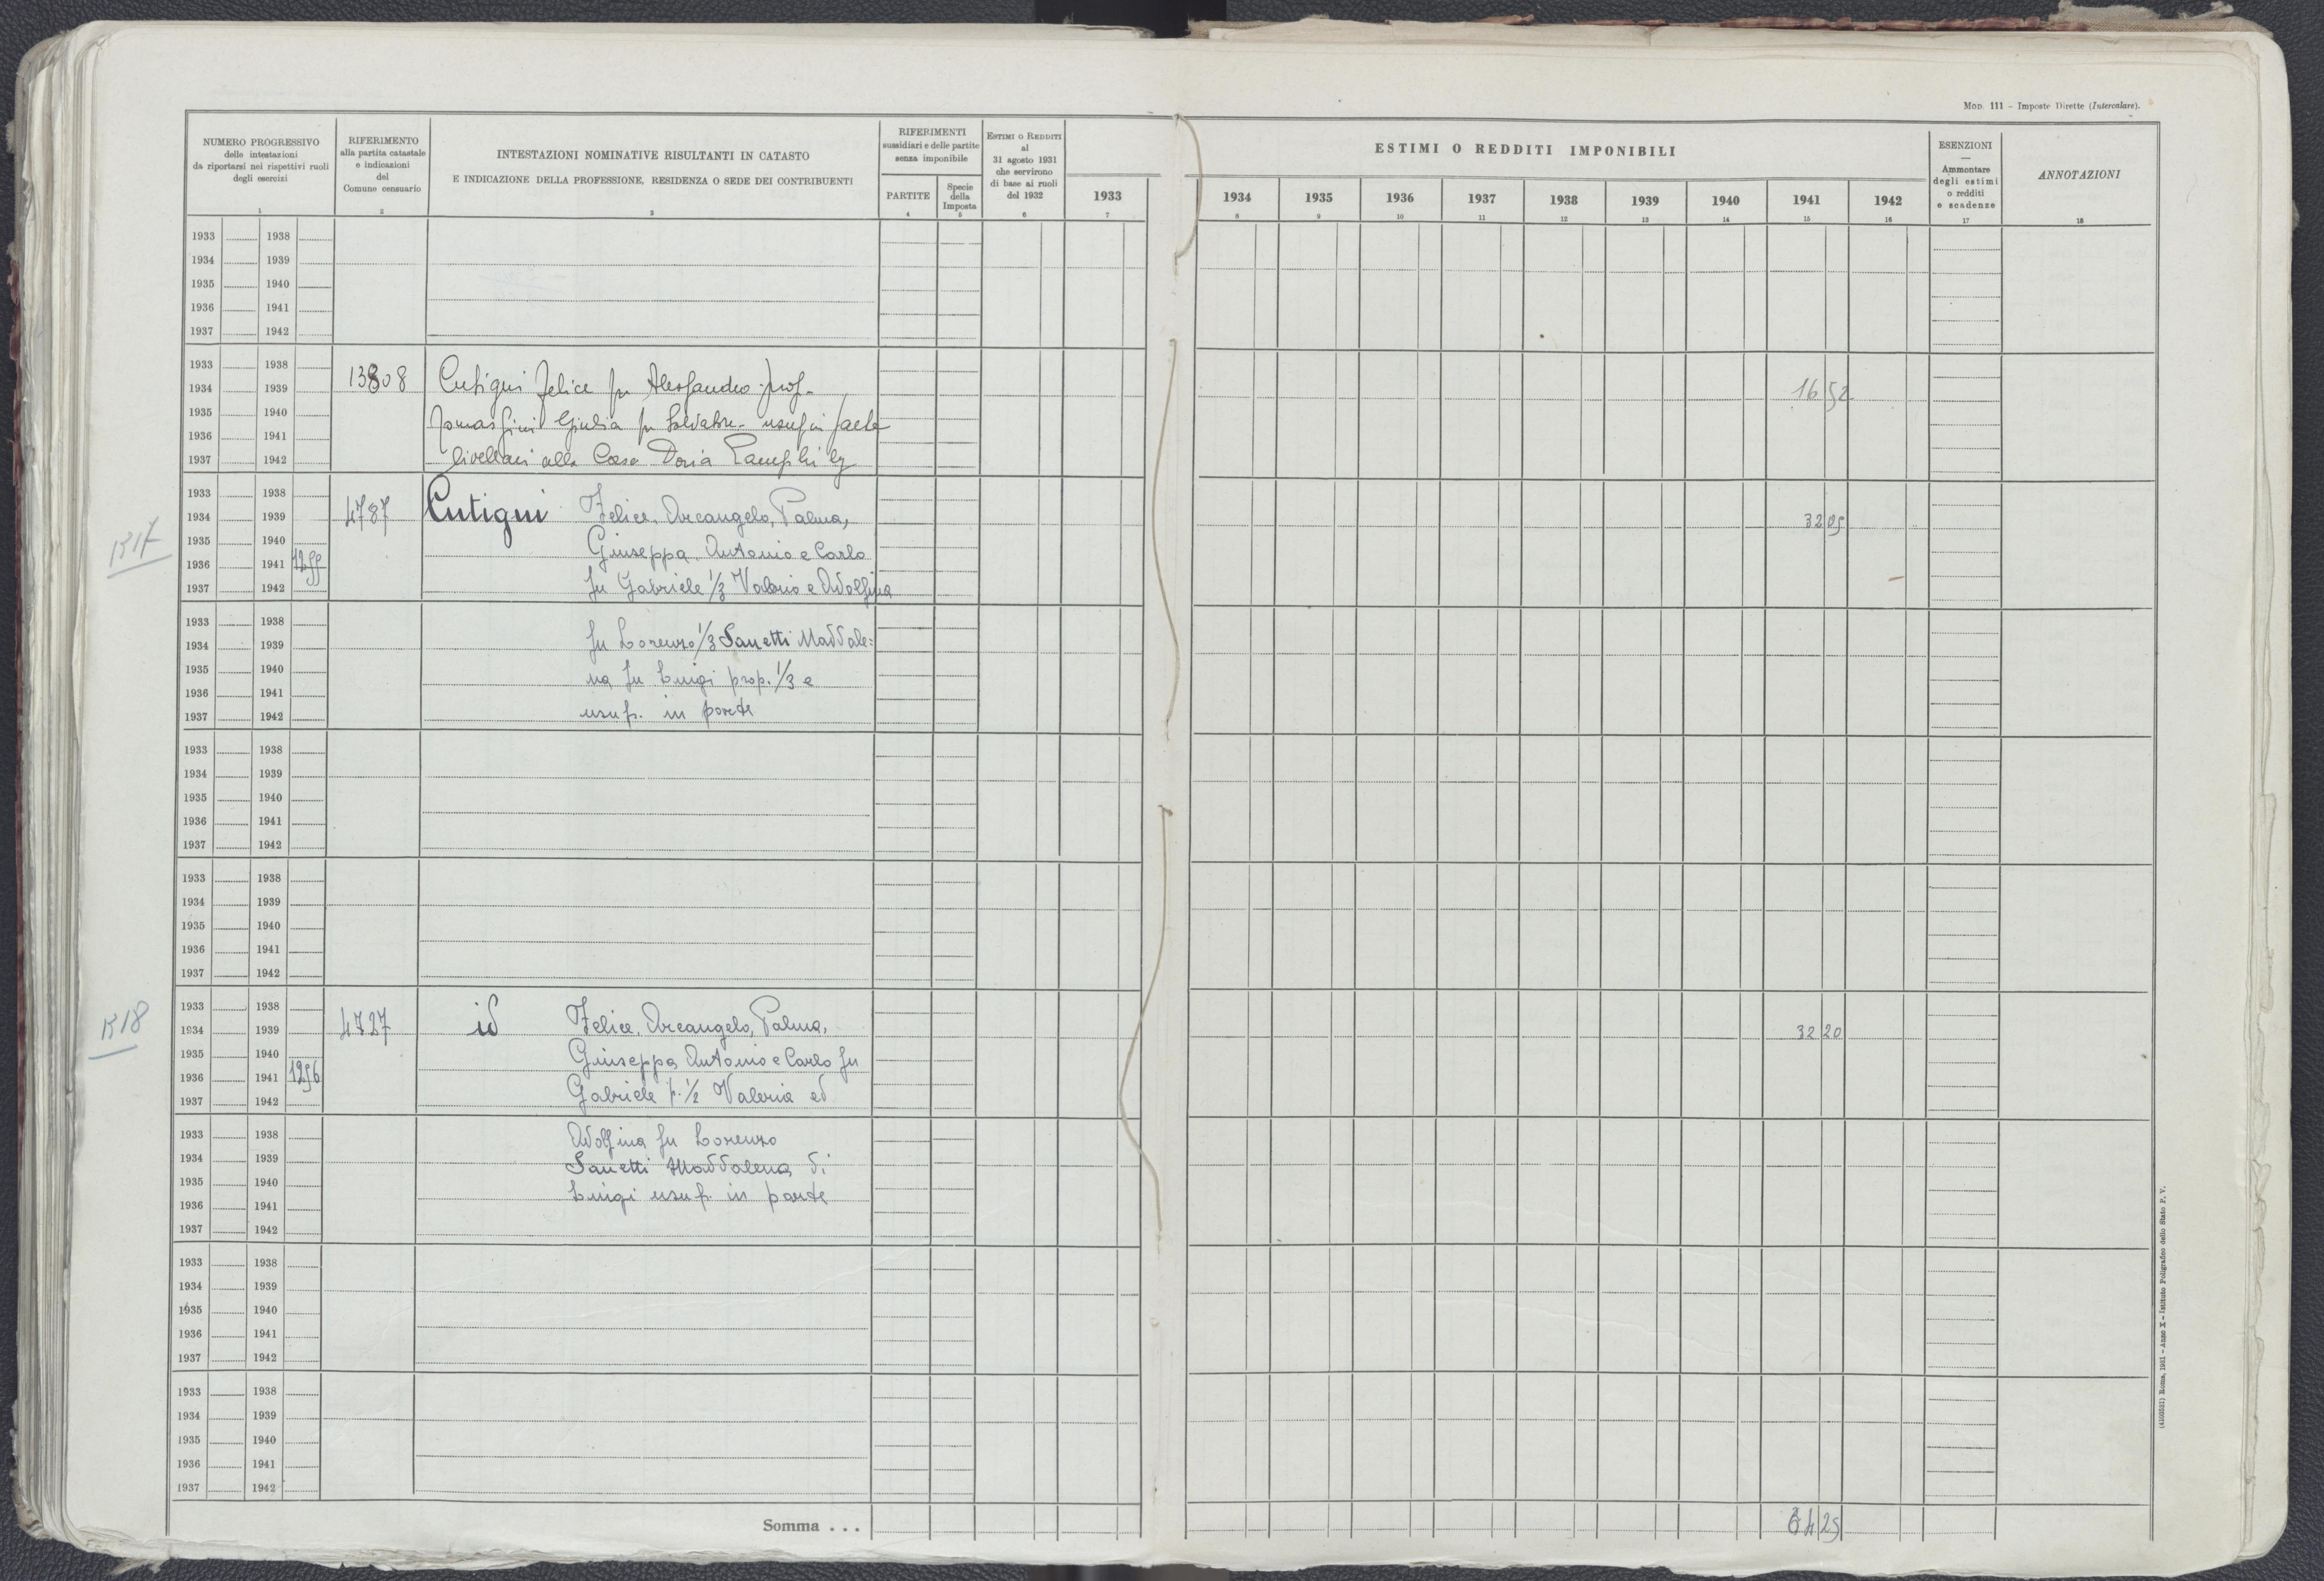 Mod. 111 – Imposte Dirette (Intercalare).
NUMERO PROGRESSIVO
delle intestazioni
da riportarsi nei rispettivi ruoli
degli esercizi
1
RIFERIMENTO
alla partita catastale
e indicazioni
del
Comune censuario
2
INTESTAZIONI NOMINATIVE RISULTANTI IN CATASTO
E INDICAZIONE DELLA PROFESSIONE, RESIDENZA O SEDE DEI CONTRIBUENTI
3
RIFERIMENTI
sussidiari e delle partite
senza imponibile
PARTITE
4
Specie
della
Imposta
5
Estimi o Redditi
al
31 agosto 1931
che servirono
di base ai ruoli
del 1932
6
1933
7
ESTIMI O REDDITI IMPONIBILI
1934 1935 1936 1937 1938 1939 1940 1941 1942
8 9 10 11 12 13 14 15 16
ESENZIONI
—
Ammontare
degli estimi
o redditi
e scadenze
17
ANNOTAZIONI
18
1933 1938
1934 1939
1935 1940
1936 1941
1937 1942
1933 1938
1934 1939 13808 Cutigni Felice fu Alessandro prop. 16 52
1935 1940 Giulia fu Salvatore - usuf in parte
1936 1941
1937 1942 livellari alla Casa Doria Pamphily
1933 1938
1934 1939 4787 Cutigni Felice, Arcangelo, Palma, 32 05
1935 1940 Giuseppa, Antonio e Carlo
R17
1936 1941 1255
1937 1942 fu Gabriele 1/3 Valerio e Adolfina
1933 1938
1934 1939 fu Lorenzo 1/3 Sanetti Maddale=
1935 1940 na fu Luigi prop. 1/3 e
1936 1941
1937 1942 usuf. in parte
1933 1938
1934 1939
1935 1940
1936 1941
1937 1942
1933 1938
1934 1939
1935 1940
1936 1941
1937 1942
R18
1933 1938
1934 1939 4727 id Felice, Arcangelo, Palma, 32 20
1935 1940 Giuseppa, Antonio e Carlo fu
1936 1941 1256
1937 1942 Gabriele p. 1/2 Valeria ed
1933 1938 Adolfina fu Lorenzo
1934 1939 Sanetti Maddalena di
1935 1940 Luigi usuf. in parte
1936 1941
1937 1942
1933 1938
1934 1939
1935 1940
1936 1941
1937 1942
1933 1938
1934 1939
1935 1940
1936 1941
1937 1942
Somma . . . 64 25
Roma, 1931 – Anno X – Istituto Poligrafico dello Stato P. V.